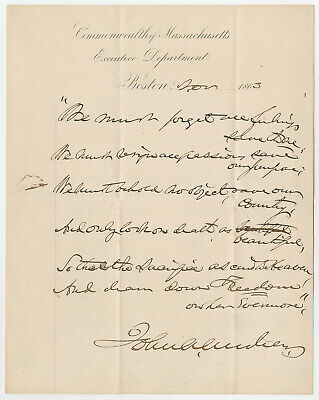 Commonwealth of Massachusetts
Executive Department
Boston, Nov 1863
"We must forget all feelings
save one,
We must resign all passions save
our purpose,
We must behold no object, save our
country,
And only look on death as beautiful
beautiful,
So that the sacrifice ascend to heaven
And draw down Freedom
on her evermore".
John A. Andrew